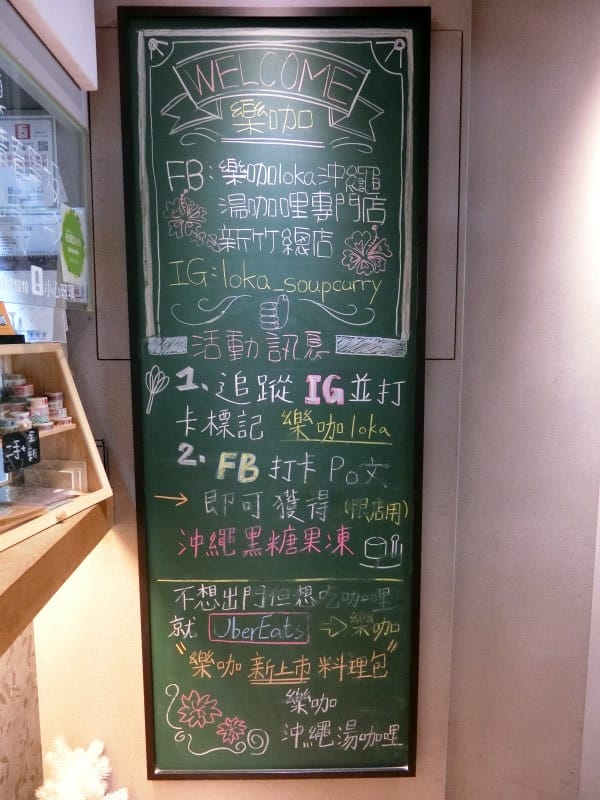 WELCOME
樂咖
FB:樂咖loka沖繩
湯咖哩專門店
新竹總店
IG:loka_soupcurry
活動訊息
1. 追蹤 IG 並打
卡標記 樂咖loka
2. FB 打卡 Po文
→ 即可獲得 (限店用)
沖繩黑糖果凍
不想出門但想吃咖哩
就 UberEats ⇨ 樂咖
"樂咖 新上市 料理包"
樂咖
沖繩湯咖哩
小心玻璃